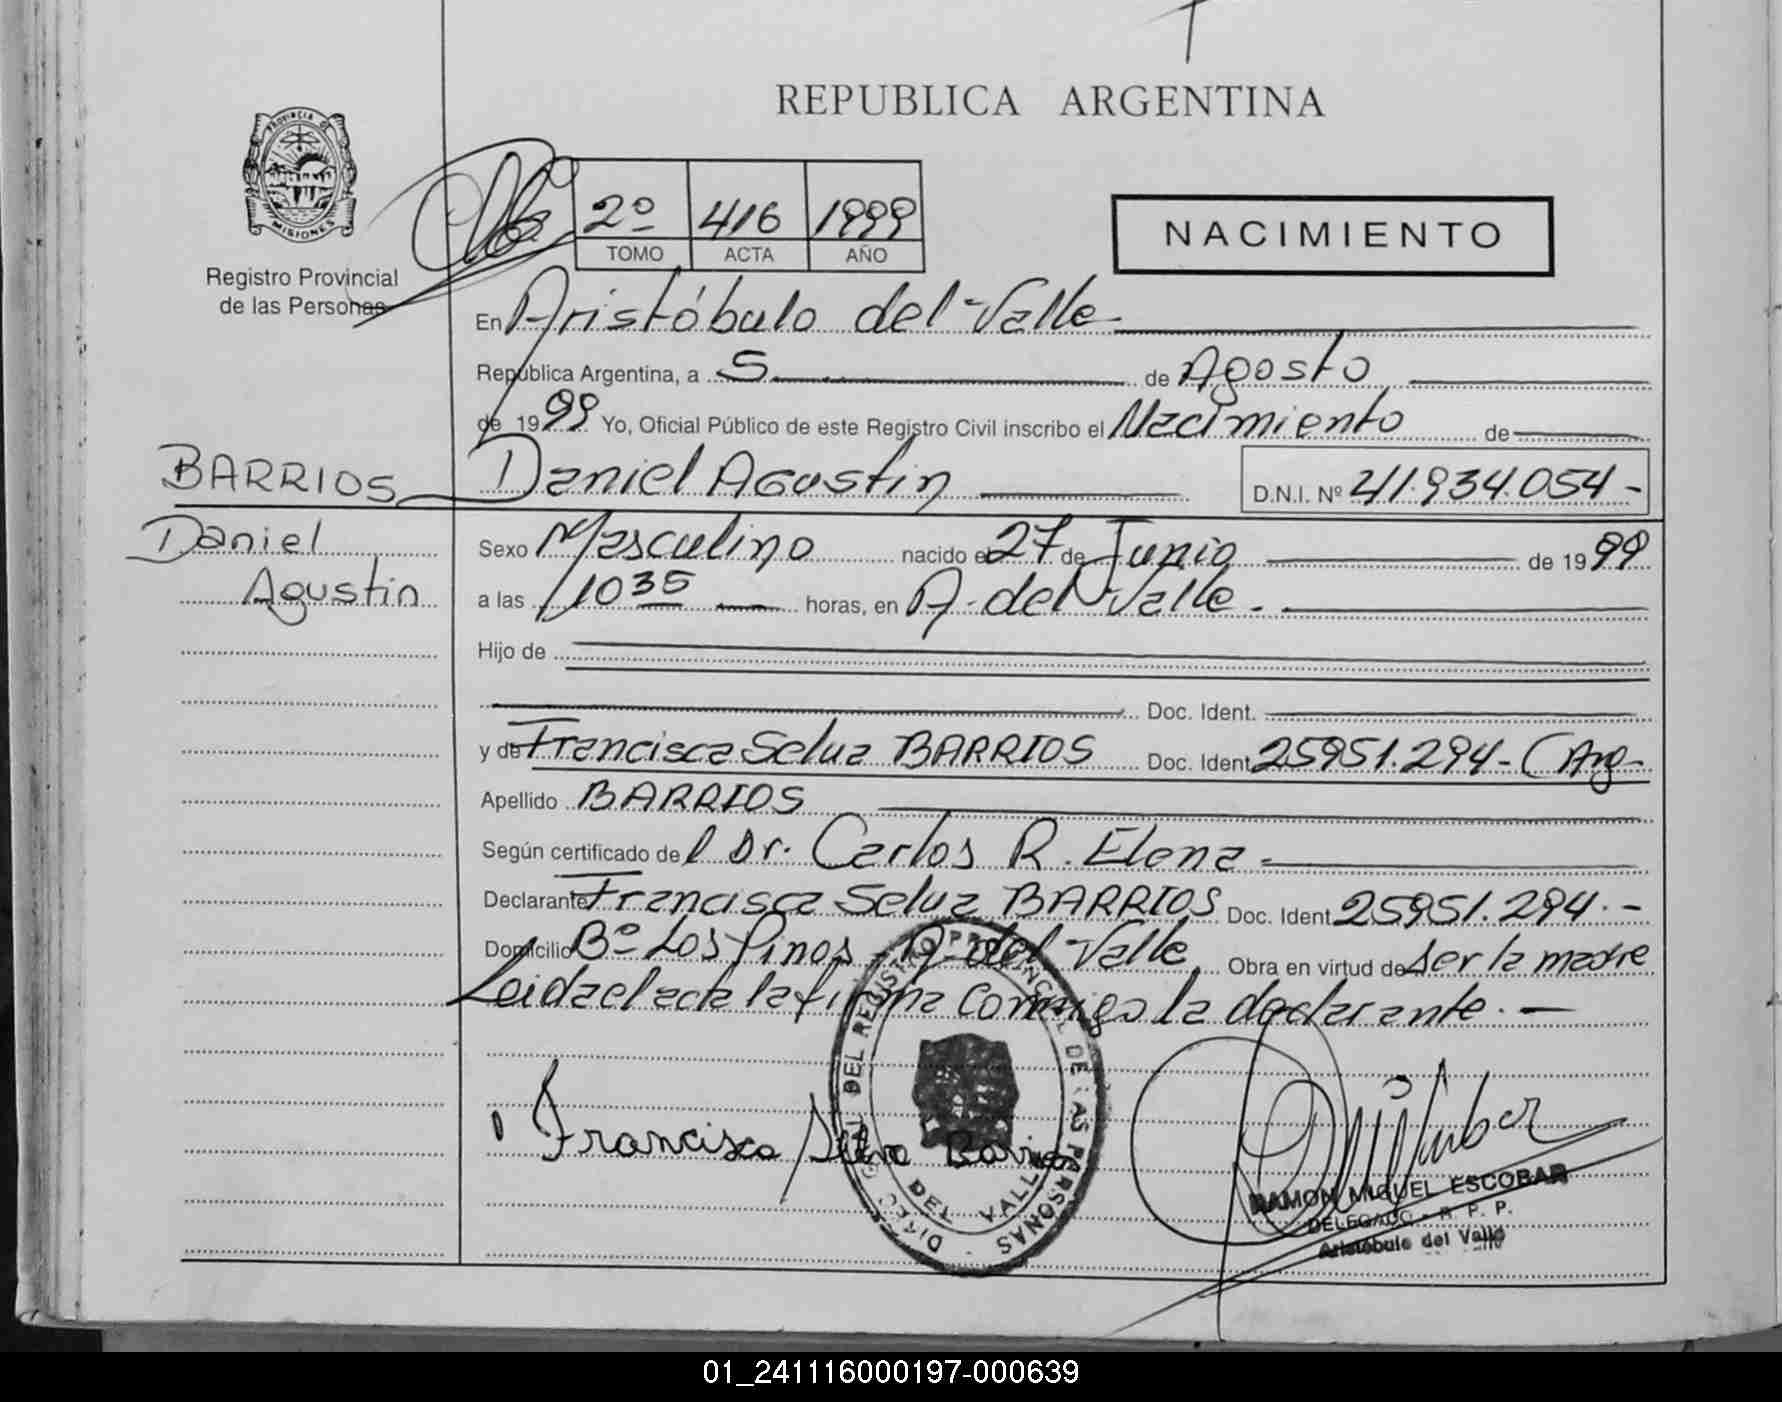 REPUBLICA ARGENTINA
PROVINCIA DE MISIONES
Registro Provincial
de las Personas
2º 416 1999
TOMO ACTA AÑO
NACIMIENTO
En Aristóbulo del Valle
República Argentina, a 5 de Agosto
de 1999 Yo, Oficial Público de este Registro Civil inscribo el Nacimiento de
BARRIOS Daniel Agustin D.N.I. Nº 41.934.054-
Daniel
Agustin
Sexo Masculino nacido el 27 de Junio de 1999
a las 10 35 horas, en A. del Valle.
Hijo de
Doc. Ident.
y de Francisca Selva BARRIOS Doc. Ident. 25951.294- (Arg-
Apellido BARRIOS
Según certificado del Dr. Carlos R. Elena
Declarante Francisca Selva BARRIOS Doc. Ident. 25951.294.-
Domicilio Bº Los Pinos - A. del Valle Obra en virtud de ser la madre
Leida el acta la firma conmigo la declarante.-
Francisca Selva Barrios
DEL REGISTRO PROVINCIAL DE LAS PERSONAS
DEL VALLE
RAMON MIGUEL ESCOBAR
DELEGADO - R. P. P.
Aristóbulo del Valle
01_241116000197-000639